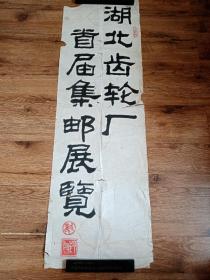 湖北齿轮厂
首届集邮展覽